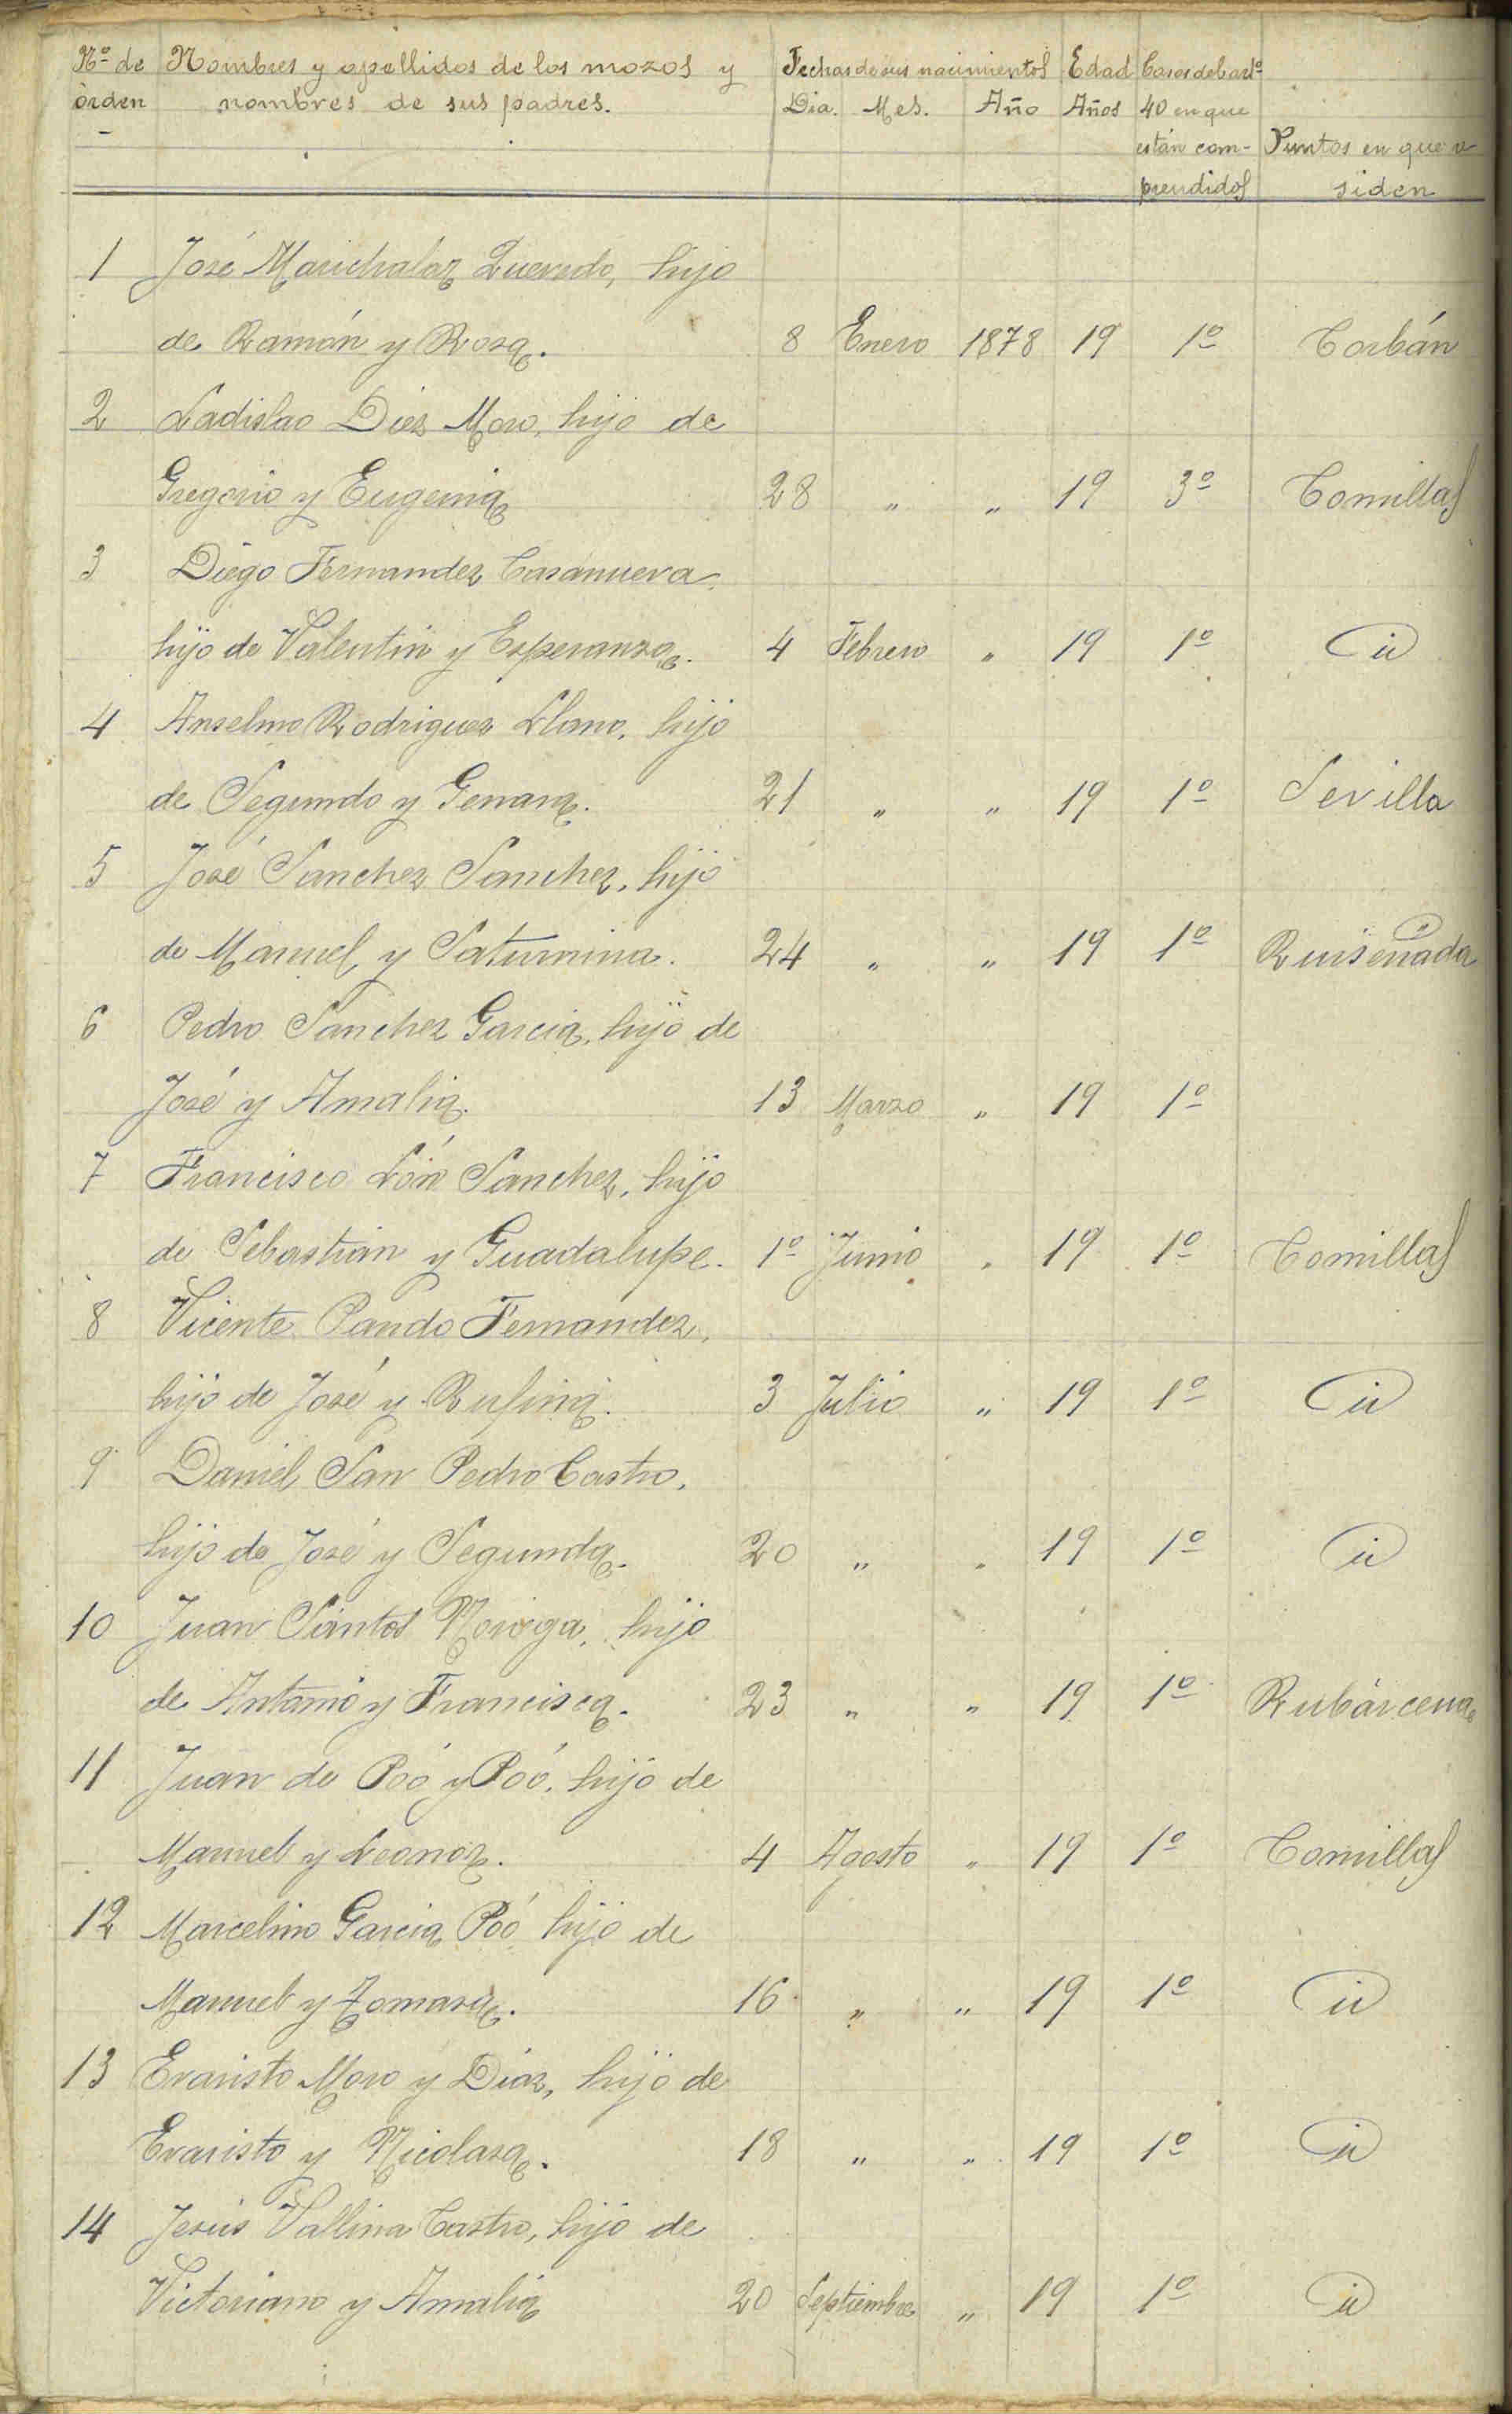 Nº de Nombres y apellidos de los mozos y Fechas de sus nacimientos Edad Casos del artº
órden nombres de sus padres. Dia. Mes. Año Años 40 en que
están com- Puntos en que re
prendidos siden
1 José Marichalar Quevedo, hijo
de Ramón y Rosa. 8 Enero 1878 19 1º Corbán
2 Ladislao Diez Moro, hijo de
Gregorio y Eugenia 28 " " 19 3º Comillas
3 Diego Fernandez Casanueva,
hijo de Valentin y Esperanza. 4 Febrero " 19 1º id
4 Anselmo Rodriguez Llano, hijo
de Segundo y Genara. 21 " " 19 1º Sevilla
5 José Sanchez Sanchez, hijo
de Manuel y Saturnina. 24 " " 19 1º Ruiseñada
6 Pedro Sanchez Garcia, hijo de
José y Amalia. 13 Marzo " 19 1º
7 Francisco Lón Sanchez, hijo
de Sebastian y Guadalupe. 1º Junio " 19 1º Comillas
8 Vicente Pando Fernandez,
hijo de José y Rufina. 3 Julio " 19 1º id
9 Daniel San Pedro Castro,
hijo de José y Segunda. 20 " " 19 1º id
10 Juan Santos Noriega, hijo
de Antonio y Francisca. 23 " " 19 1º Rubárcena
11 Juan de Póo y Póo, hijo de
Manuel y Leonor. 4 Agosto " 19 1º Comillas
12 Marcelino Garcia Póo hijo de
Manuel y Tomasa. 16 " " 19 1º id
13 Evaristo Moro y Diaz, hijo de
Evaristo y Nicolasa. 18 " " 19 1º id
14 Jesús Vallina Castro, hijo de
Victoriano y Amalia 20 Septiembre " 19 1º id